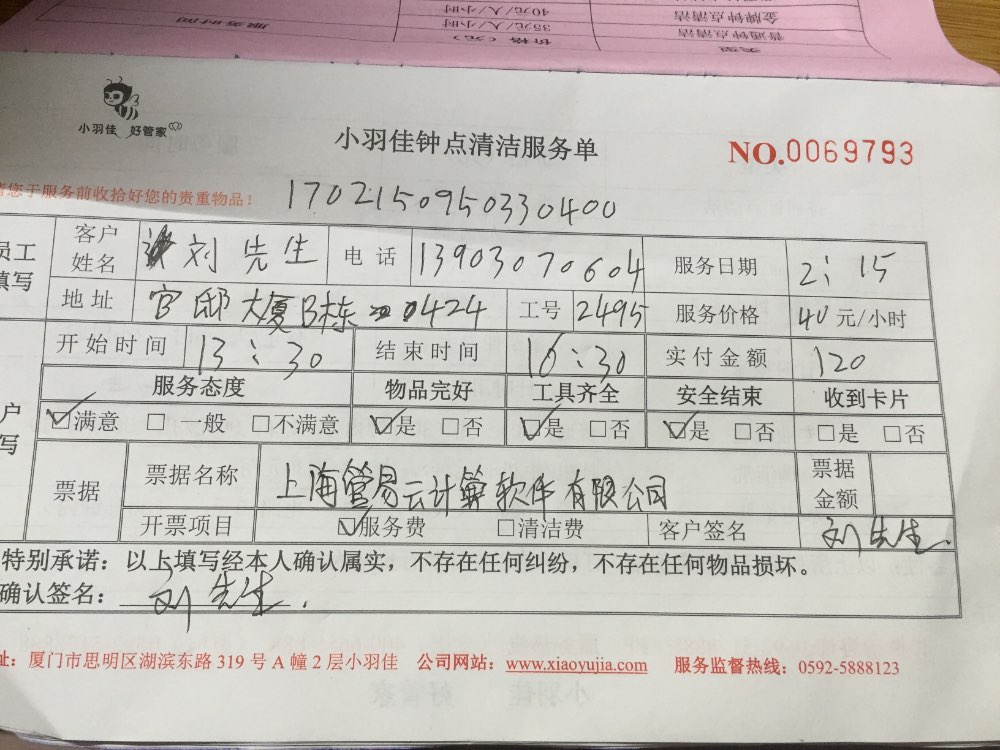 类型 价格（元） 服务时间
普通钟点清洁 35元/人/小时
金牌钟点清洁 40元/人/小时
小羽佳 好管家
小羽佳钟点清洁服务单 NO.0069793
您于服务前收拾好您的贵重物品！ 1702150950330400
员工填写 客户姓名 刘先生 电话 13903070604 服务日期 2：15
地址 官邸大厦B栋 0424 工号 2495 服务价格 40元/小时
开始时间 13：30 结束时间 16：30 实付金额 120
服务态度 物品完好 工具齐全 安全结束 收到卡片
☑满意 □一般 □不满意 ☑是 □否 ☑是 □否 ☑是 □否 □是 □否
户写
票据 票据名称 上海管易云计算软件有限公司 票据金额
开票项目 ☑服务费 □清洁费 客户签名 刘先生
特别承诺：以上填写经本人确认属实，不存在任何纠纷，不存在任何物品损坏。
确认签名： 刘先生.
址：厦门市思明区湖滨东路 319 号 A 幢 2 层小羽佳 公司网站：www.xiaoyujia.com 服务监督热线：0592-5888123